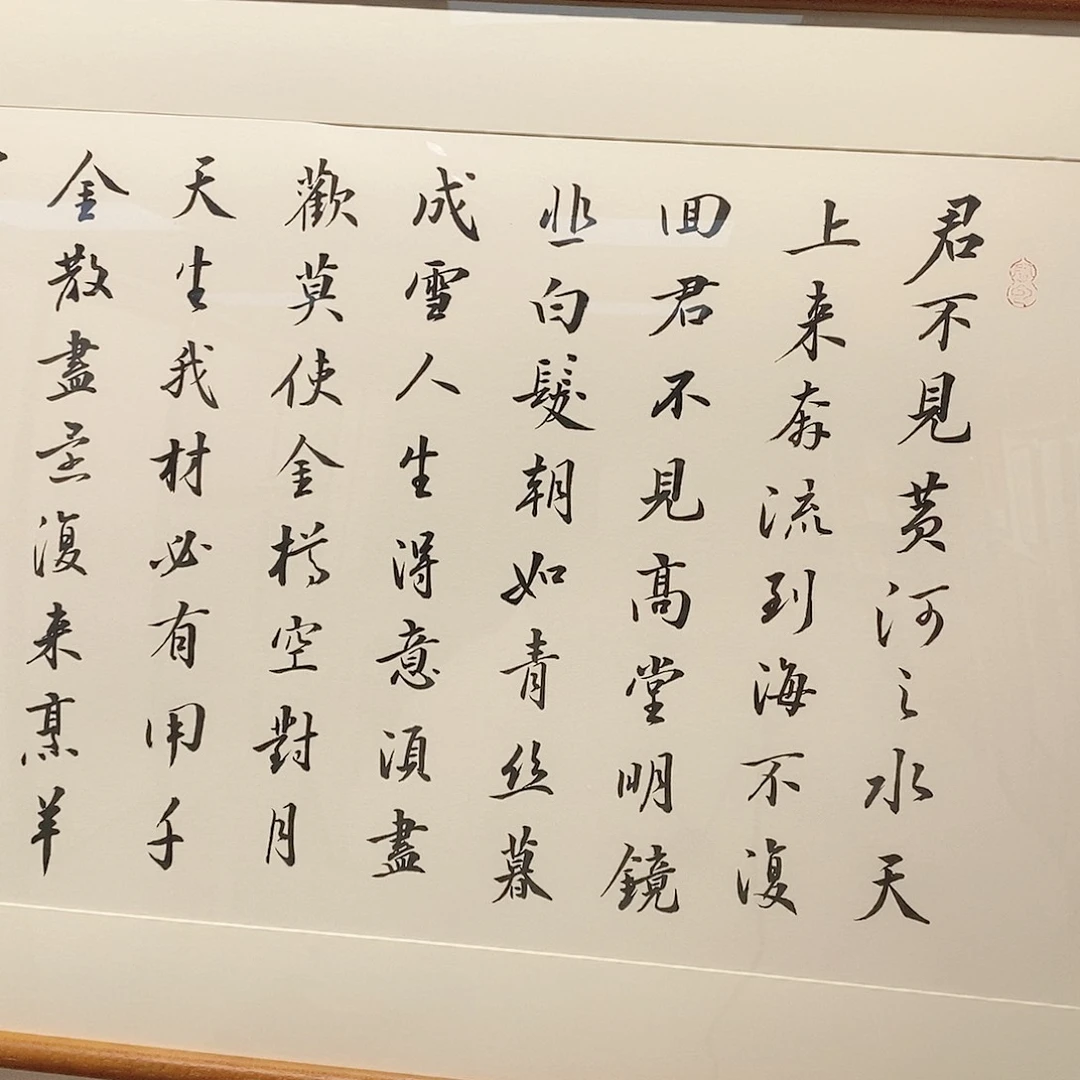 君不見黄河之水天
上来奔流到海不復
囬君不見高堂明鏡
悲白髮朝如青丝暮
成雪人生得意須盡
歡莫使金樽空對月
天生我材必有用千
金散盡还復来烹羊